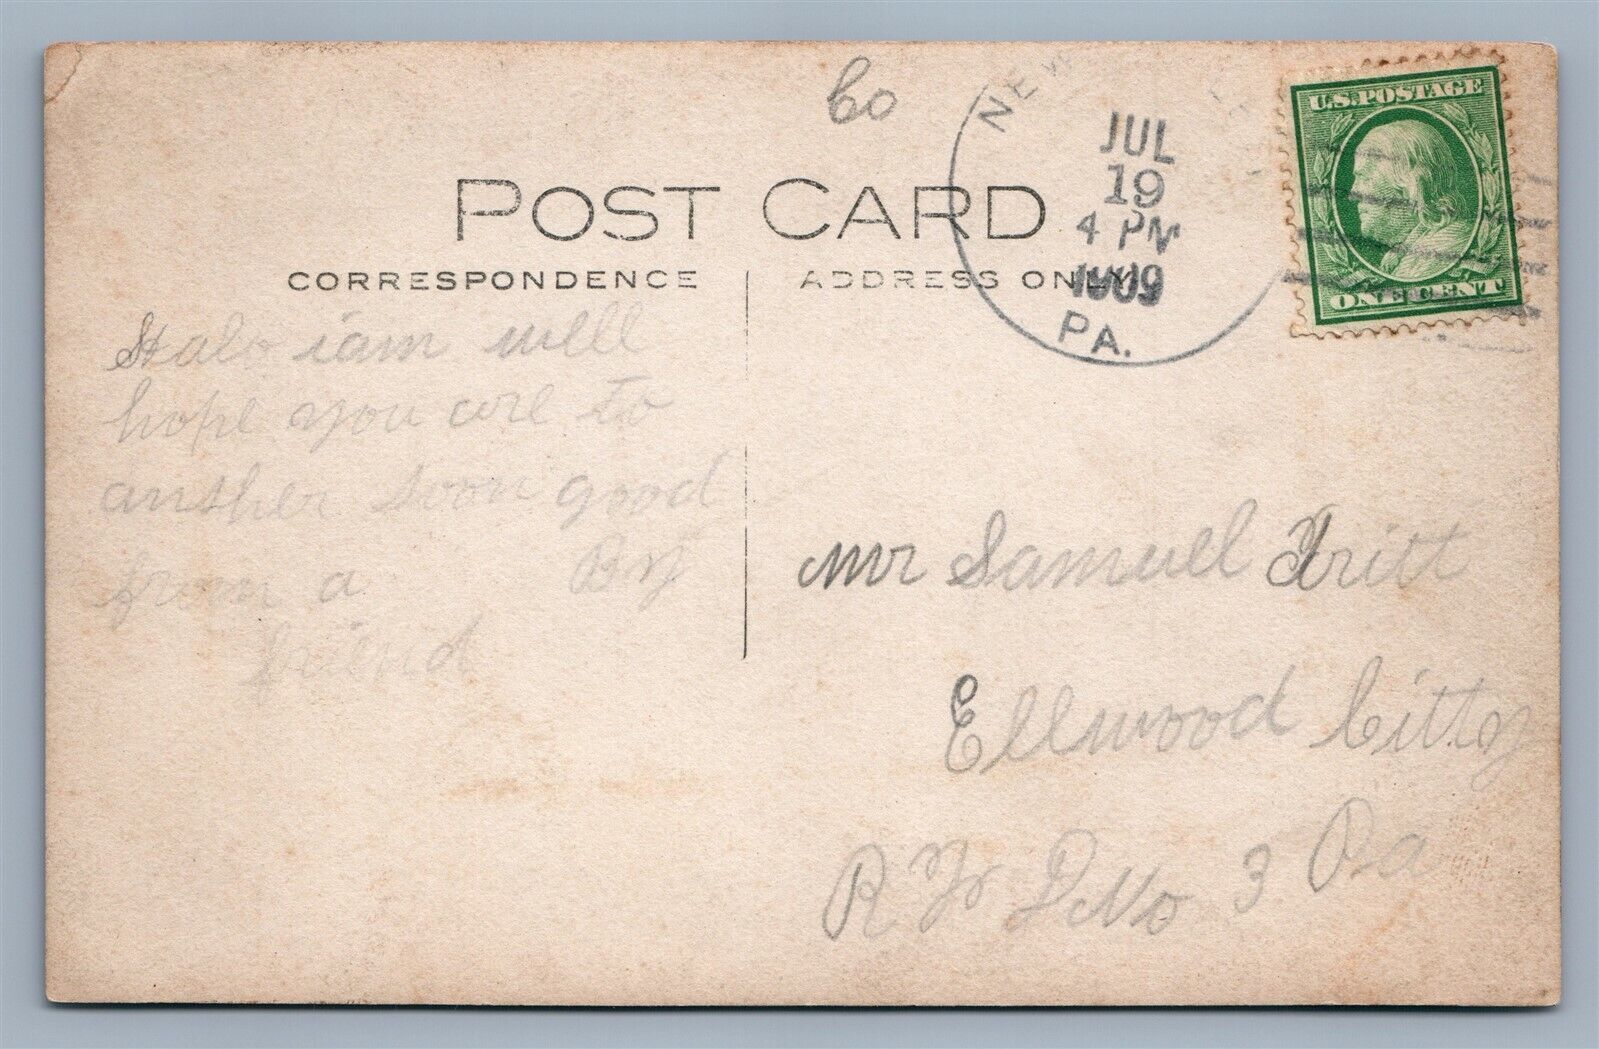 Co
POST CARD
CORRESPONDENCE
ADDRESS ONLY
NEW
JUL
19
4 PM
1909
PA.
U.S. POSTAGE
ONE CENT
Halo i am well
hope you are to
another soon good
from a By
friend
Mr Samuell Fritt
Ellwood Citty
R F D No 3 Pa